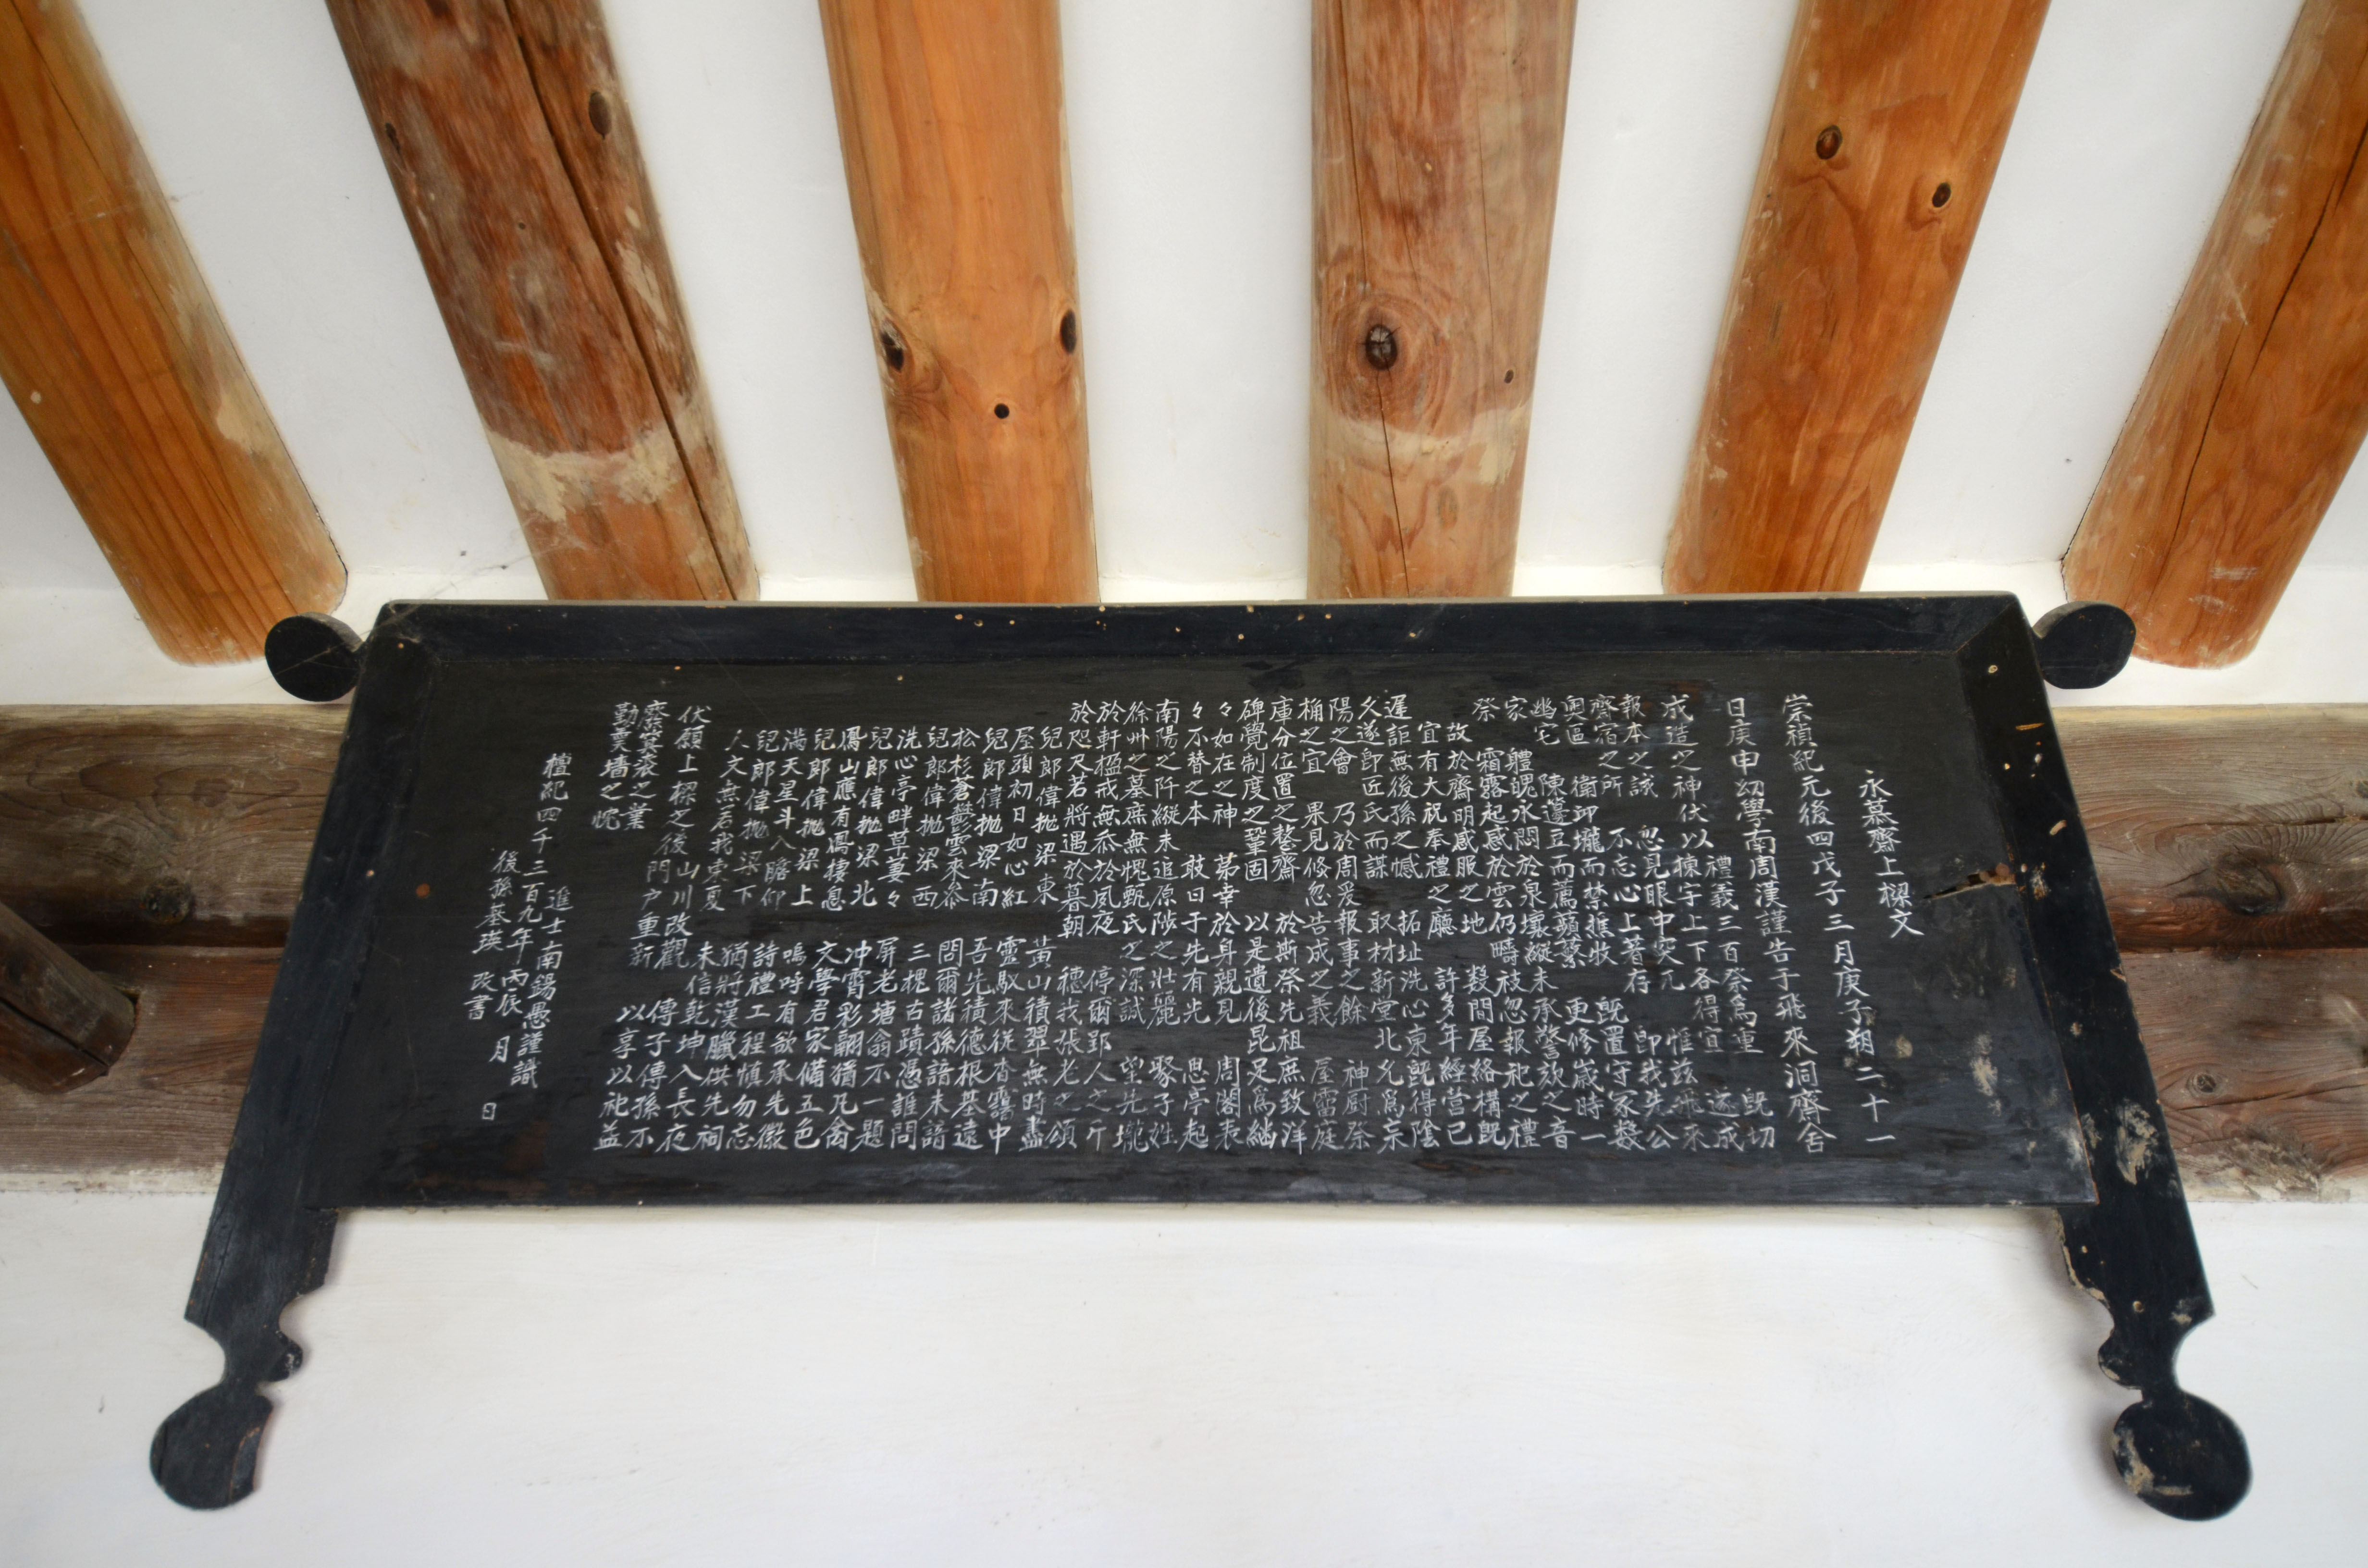 永慕齋上樑文
崇禎紀元後四戊子三月庚子朔二十一
日庚申幼學南周漢謹告于飛來洞齋舍
成造之神伏以禮義三百祭爲重 旣切
報本之誠 棟宇上下各得宜 遂成
齋宿之所 忽見眼中突兀 惟玆飛來
奧區 不忘心上著存 卽我先公
幽宅 衛邱壠而禁樵牧 旣置守冢數
家 陳籩豆而薦蘋蘩 更修歲時一
祭 體魄永閟於泉壤縱未承警欬之音
霜露起感於雲仍疇敢忽報祀之禮
故於齋明感服之地 數間屋絡構旣
宜有大祝奉禮之廳 許多年經營已
遲詎無後孫之憾 拓址洗心東旣得陰
久遂卽匠氏而謀 取材新堂北允爲宗
陽之會 乃於周爰報事之餘 神厨祭
桷之宜 果見倏忽告成之義 屋雷庭
庫分位置之整齊 於斯祭先祖庶致洋
碑覺制度之鞏固 以是遺後昆足爲綿
々如在之神 苐幸於身親見 周閣表
々不替之本 敢曰于先有光 思亭起
南陽之阡縱未追原陟之壯麗 聚子姓
徐州之墓庶無愧甄氏之深誠 望先壠
於軒楹戒無忝於夙夜 停爾郢人之斤
於咫尺若將遇於暮朝 聽我張老之頌
兒郎偉抛梁東 黃山積翠無時盡
屋頭初日如心紅 靈馭來從杳靄中
兒郎偉抛梁南 吾先積德根基遠
松杉蒼鬱雲來參 問爾諸孫諳未諳
兒郎偉抛梁西 三槐古蹟憑誰問
洗心亭畔草萋々 屏老塘翁不一題
兒郎偉抛梁北 冲霄彩翮猶凡禽
鳳山應有鳳棲息 文學君家備五色
兒郎偉抛梁上 嗚呼有欲承先徽
滿天星斗入瞻仰 詩禮工程愼勿忘
兒郎偉抛梁下 猶將漢臘供先祠
人文無右我東夏 未信乾坤入長夜
伏願上樑之後山川改觀 傳子傳孫不
門戶重新 以享以祀益
廢箕裘之業
勤羹墻之忱
進士南錫愚謹識
檀紀四千三百九年丙辰 月 日
後孫基瑛 改書